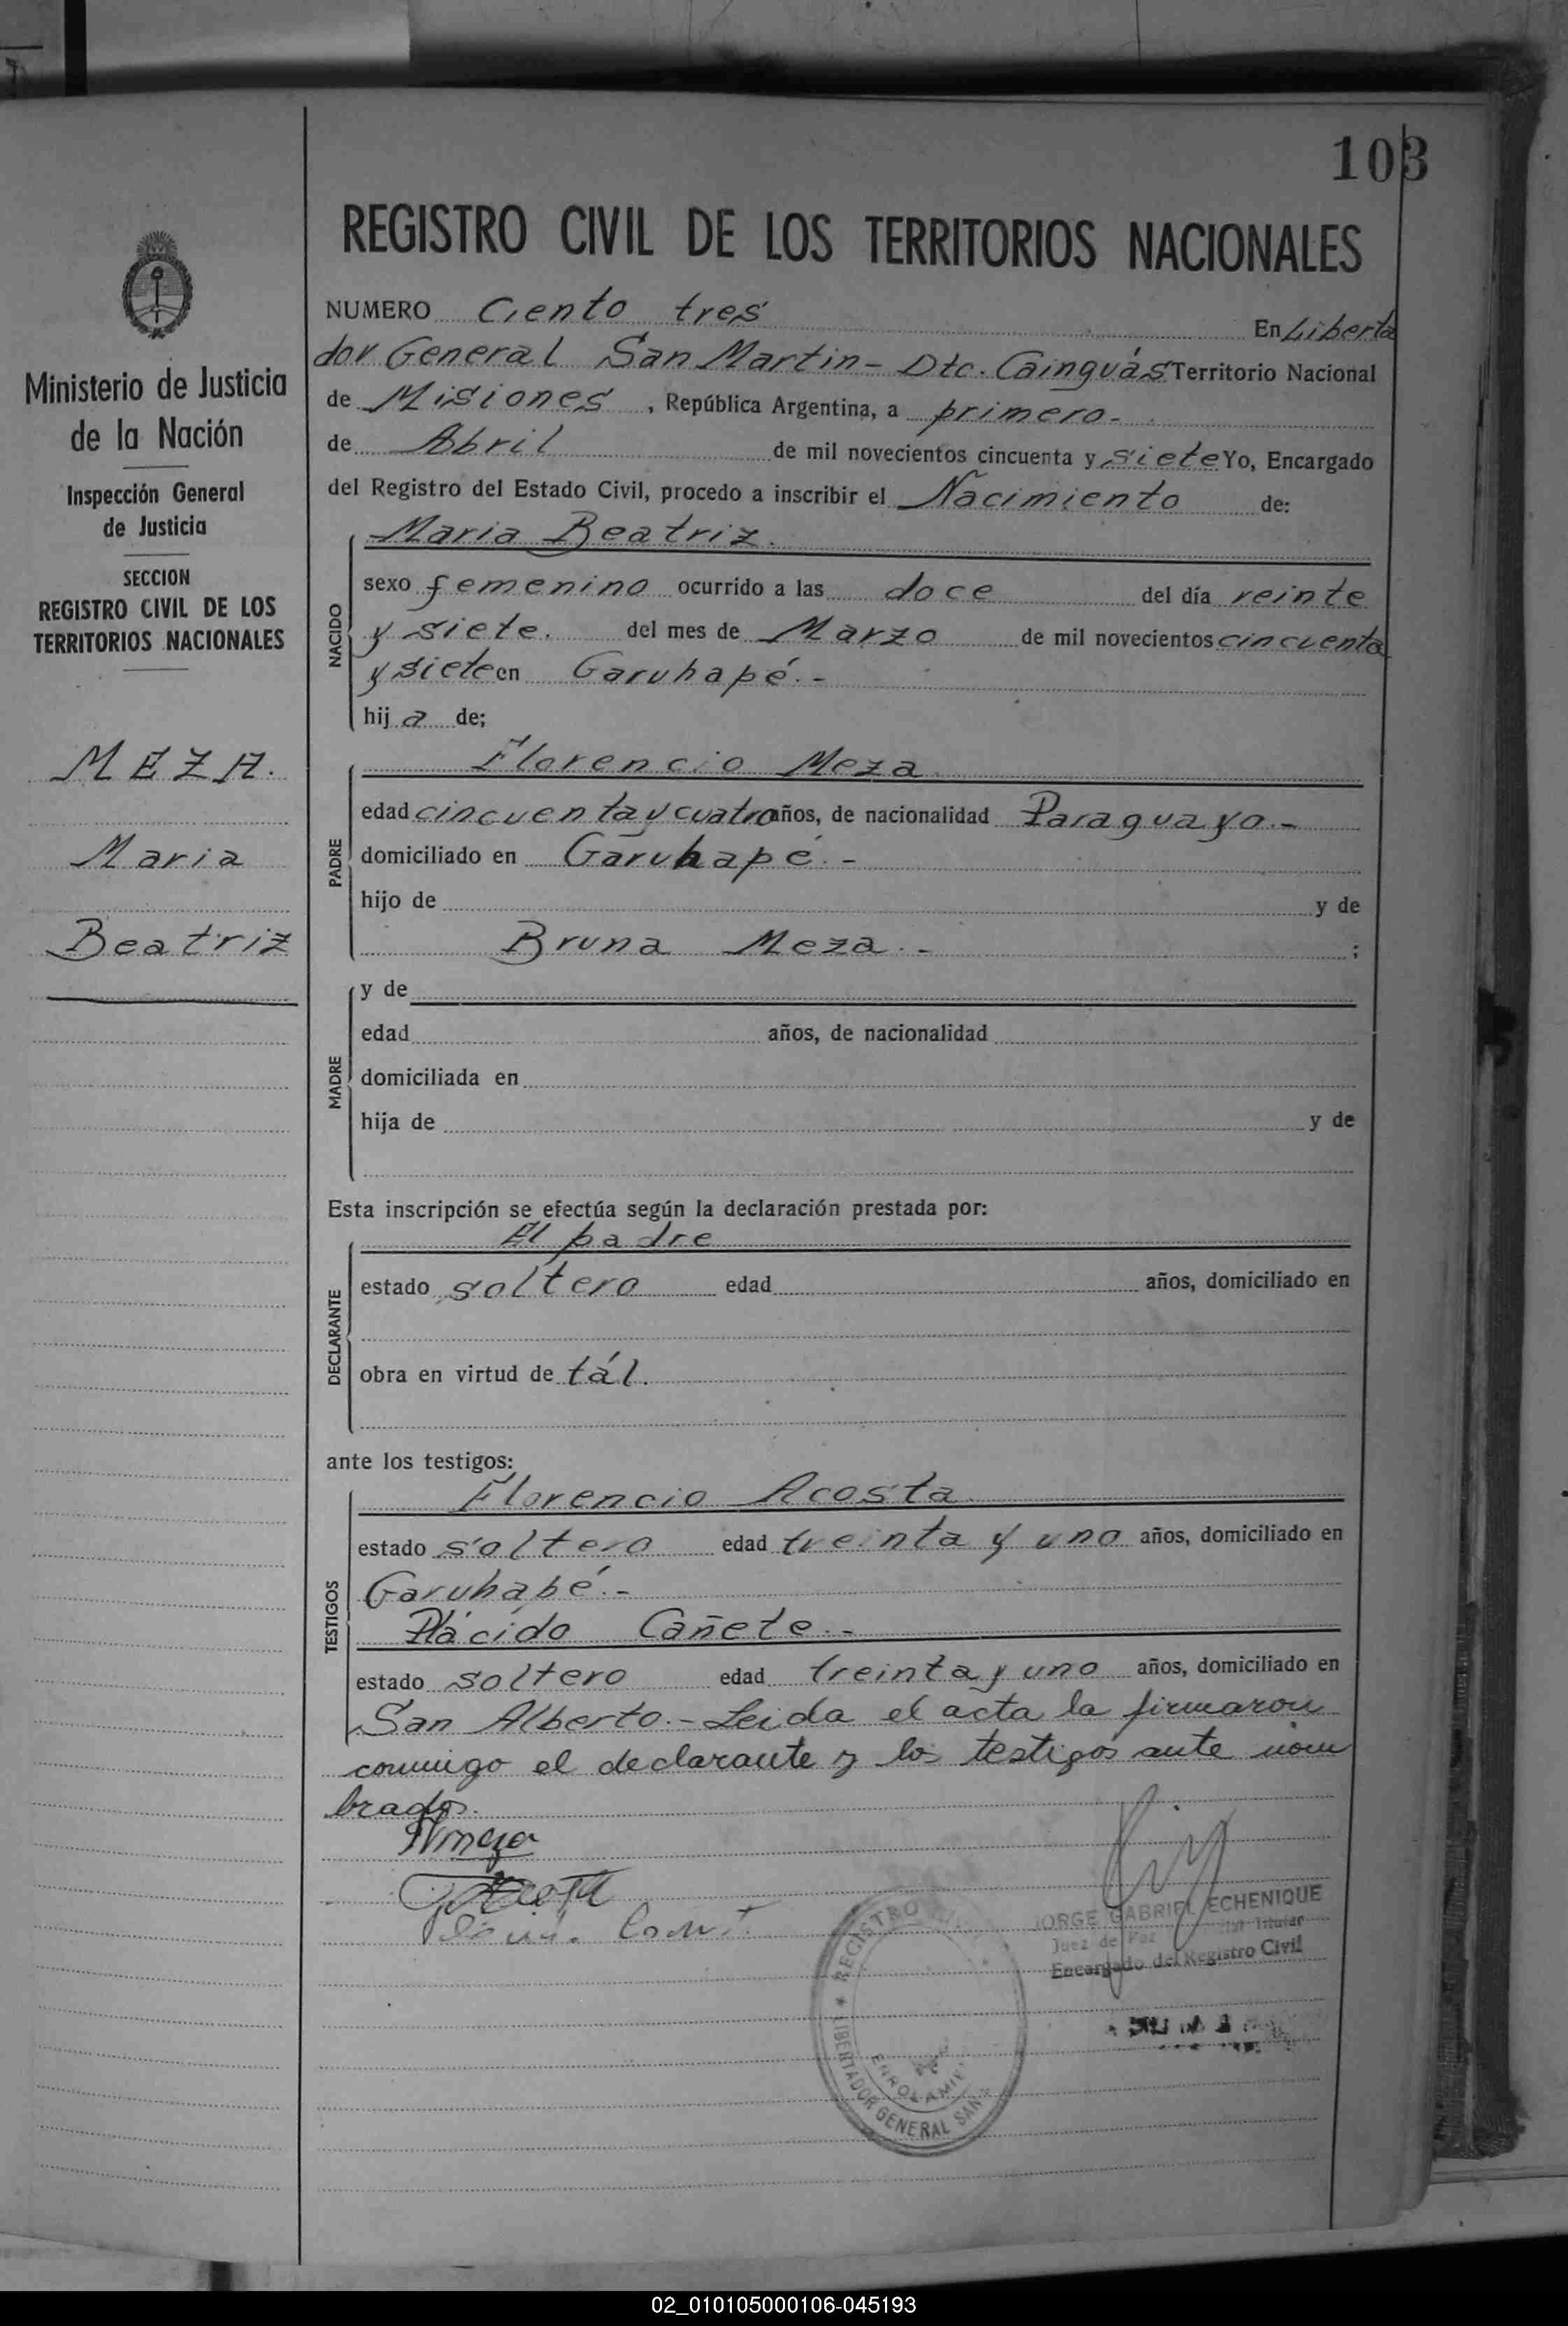 103
REGISTRO CIVIL DE LOS TERRITORIOS NACIONALES
Ministerio de Justicia
de la Nación
Inspección General
de Justicia
SECCION
REGISTRO CIVIL DE LOS
TERRITORIOS NACIONALES
MEZA.
Maria
Beatriz
NUMERO Ciento tres En Liberta
dor General San Martin - Dtc. Cainguás Territorio Nacional
de Misiones, República Argentina, a primero.
de Abril de mil novecientos cincuenta y siete Yo, Encargado
del Registro del Estado Civil, procedo a inscribir el Nacimiento de:
Maria Beatriz.
NACIDO
sexo femenino ocurrido a las doce del día veinte
y siete. del mes de Marzo de mil novecientos cincuenta
y siete en Garuhapé.-
hija de;
Florencio Meza
PADRE
edad cincuenta y cuatro años, de nacionalidad Paraguayo.-
domiciliado en Garuhapé.-
hijo de y de
Bruna Meza.- ;
MADRE
y de
edad años, de nacionalidad
domiciliada en
hija de y de
Esta inscripción se efectúa según la declaración prestada por:
El padre
DECLARANTE
estado soltero edad años, domiciliado en
obra en virtud de tál.
ante los testigos:
Florencio Acosta
TESTIGOS
estado soltero edad treinta y uno años, domiciliado en
Garuhapé.-
Plácido Cañete.-
estado soltero edad treinta y uno años, domiciliado en
San Alberto.- Leida el acta la firmaron
conmigo el declarante y los testigos ante nom
brados.
JORGE GABRIEL ECHENIQUE
Juez de Paz Titular
Encargado del Registro Civil
REGISTRO
LIBERTADOR GENERAL SAN
02_010105000106-045193